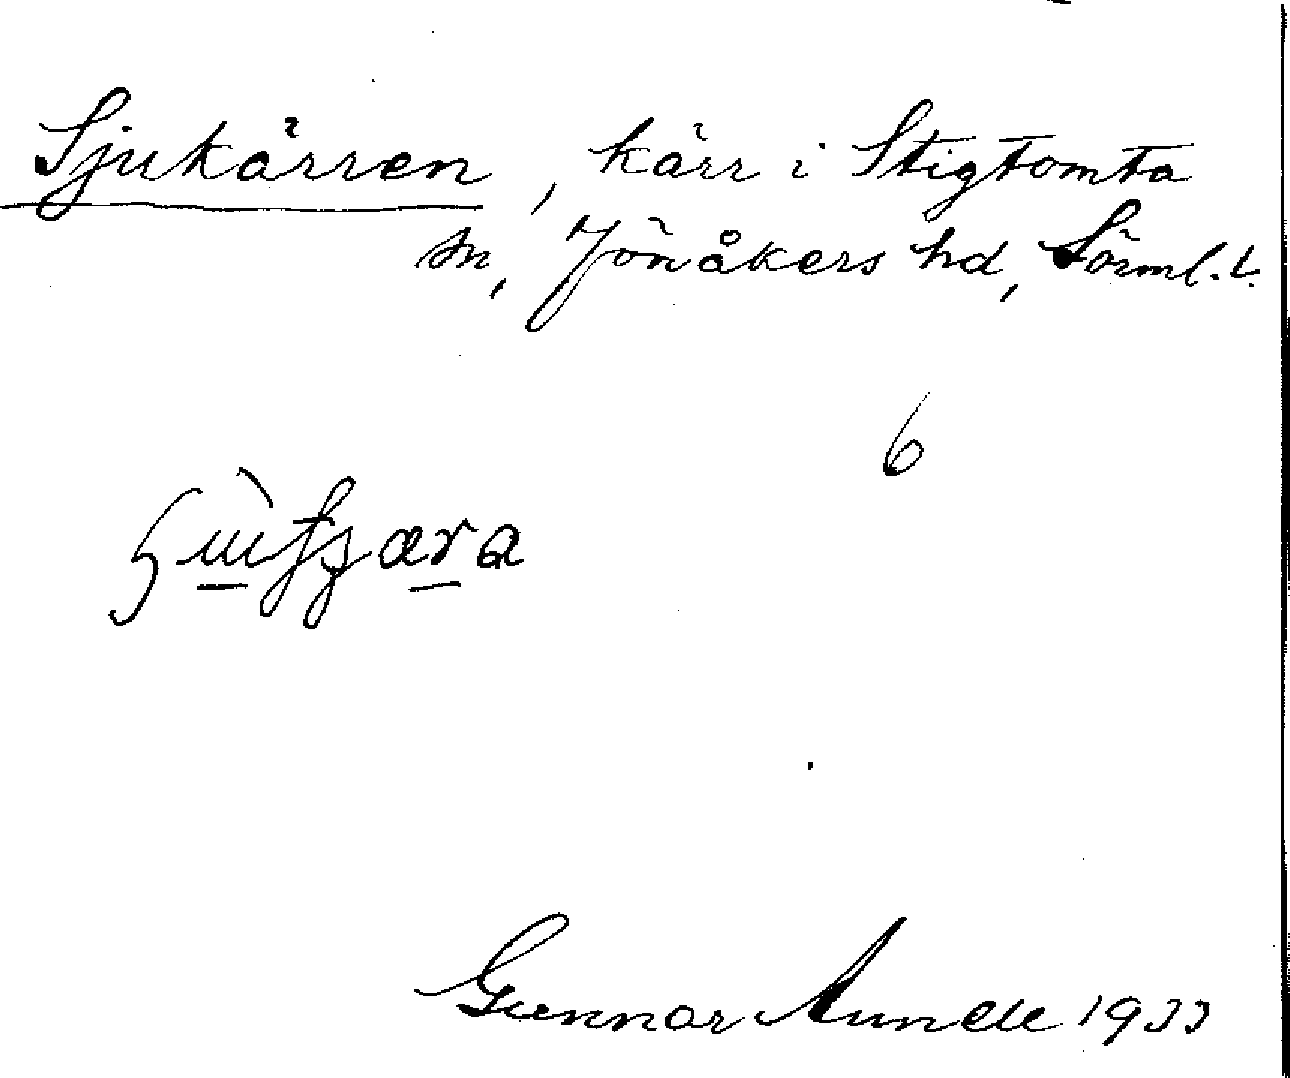 Sjukärren, kärr i Stigtomta
sn, Jönåkers hd, Sörml. l.
6
Gunnar Aunde 1933